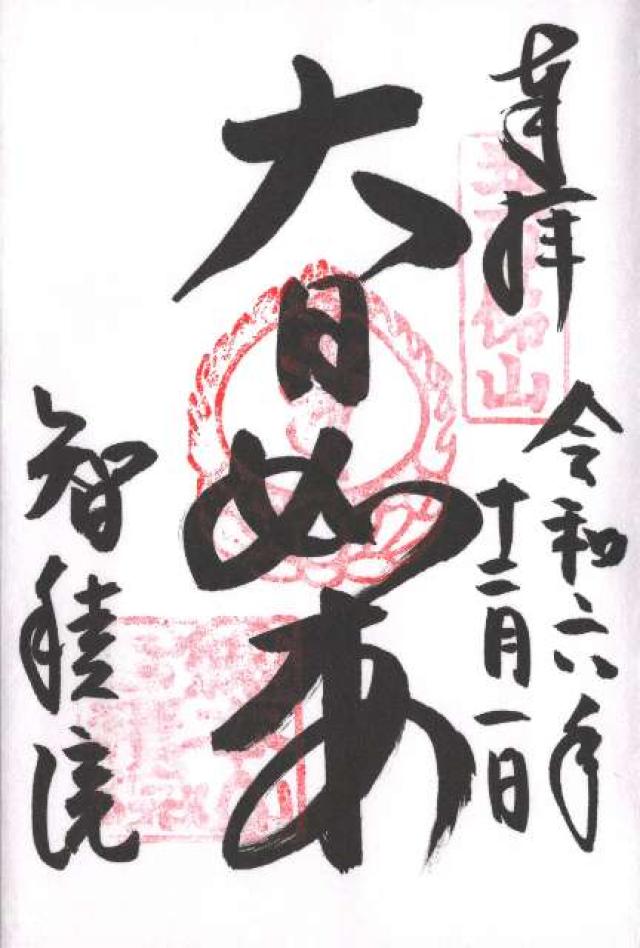 奉拝
五百佛山
令和六年
十二月一日
大日如来
智積院